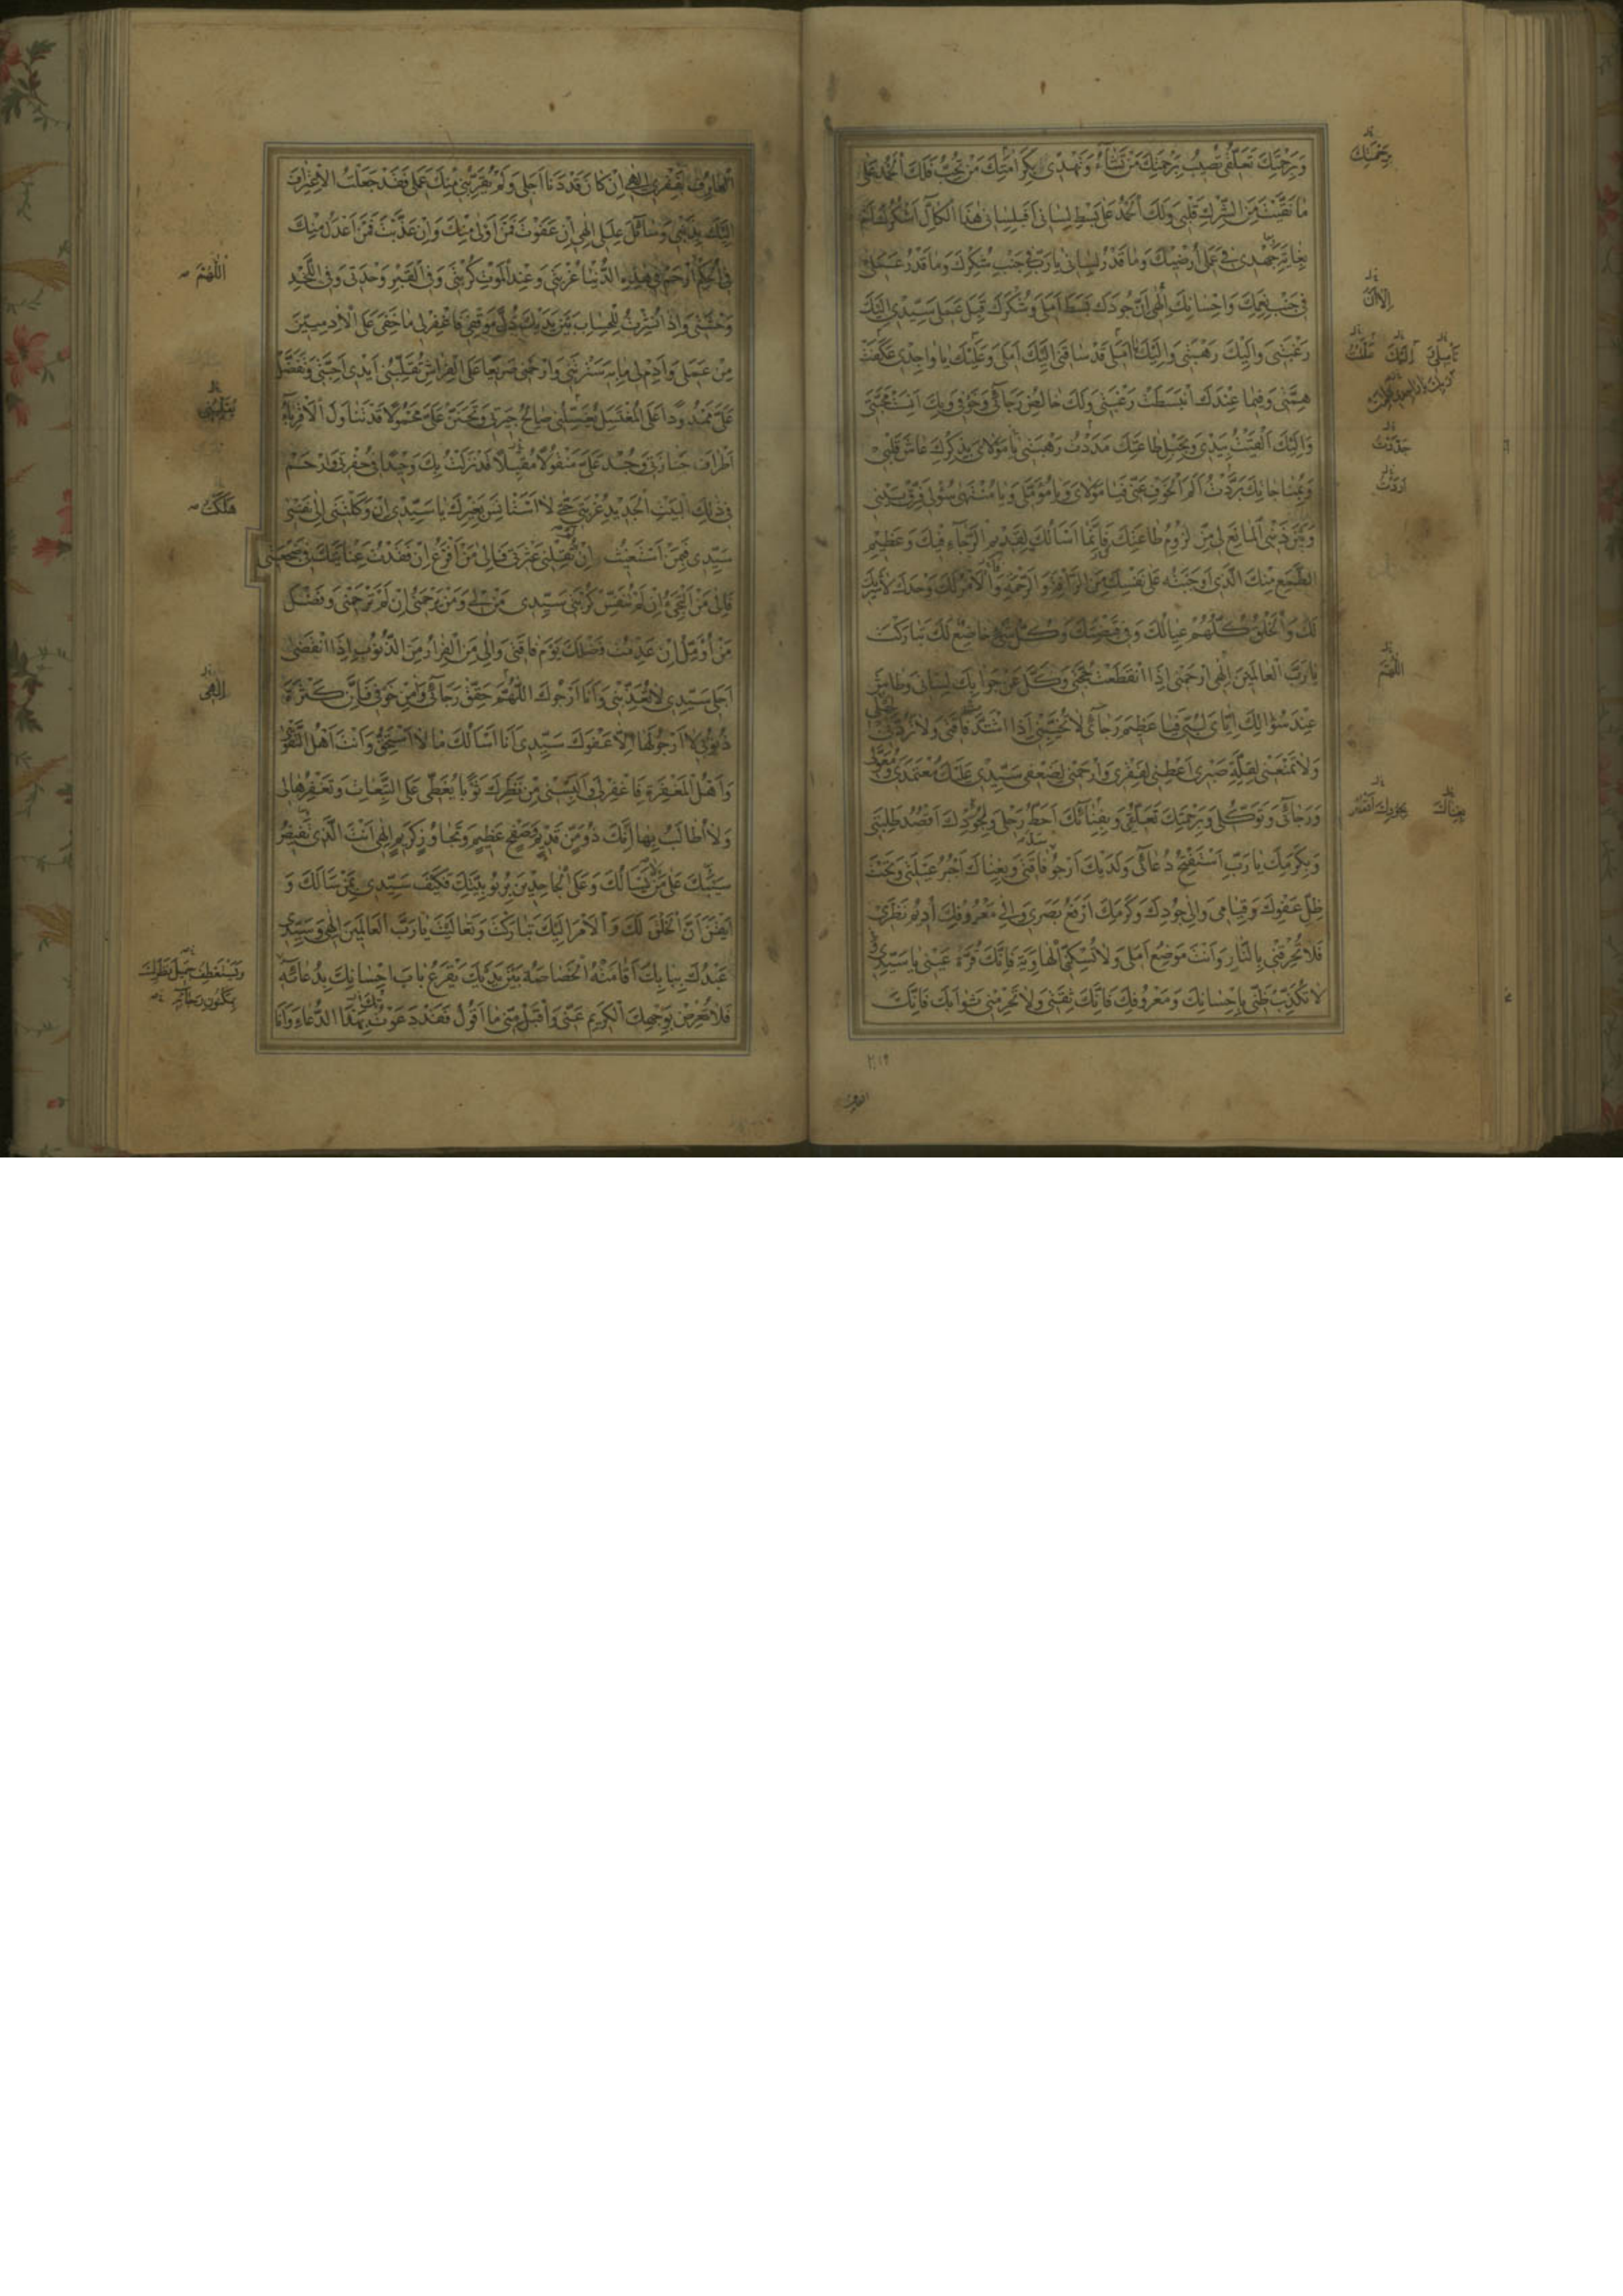 وَبِرَحْمَتِكَ تَعَلُّقِي تُصِيبُ بِرَحْمَتِكَ مَنْ تَشَاءُ وَتَهْدِي بِكَرَامَتِكَ مَنْ تُحِبُّ فَلَكَ الْحَمْدُ عَلَى
مَا نَقَّيْتَ مِنَ الشِّرْكِ قَلْبِي وَلَكَ الْحَمْدُ عَلَى بَسْطِ لِسَانِي أَفَبِلِسَانِي هٰذَا الْكَالِّ أَشْكُرُكَ أَمْ
بِغَايَةِ جُهْدِي فِي عَمَلِي أُرْضِيكَ وَمَا قَدْرُ لِسَانِي يَا رَبِّ فِي جَنْبِ شُكْرِكَ وَمَا قَدْرُ عَمَلِي
فِي جَنْبِ نِعَمِكَ وَإِحْسَانِكَ إِلٰهِي إِنَّ جُودَكَ بَسَطَ أَمَلِي وَشُكْرَكَ قَبِلَ عَمَلِي سَيِّدِي إِلَيْكَ
رَغْبَتِي وَإِلَيْكَ رَهْبَتِي وَإِلَيْكَ تَأْمِيلِي قَدْ سَاقَنِي إِلَيْكَ أَمَلِي وَعَلَيْكَ يَا وَاحِدِي عَكَفَتْ
هِمَّتِي وَفِيمَا عِنْدَكَ انْبَسَطَتْ رَغْبَتِي وَلَكَ خَالِصُ رَجَائِي وَخَوْفِي وَبِكَ أَنِسَتْ مَحَبَّتِي
وَإِلَيْكَ أَلْقَيْتُ بِيَدِي وَبِحَبْلِ طَاعَتِكَ مَدَدْتُ رَهْبَتِي يَا مَوْلَايَ بِذِكْرِكَ عَاشَ قَلْبِي
وَبِمُنَاجَاتِكَ بَرَّدْتُ أَلَمَ الْخَوْفِ عَنِّي فَيَا مَوْلَايَ وَيَا مُؤَمَّلِي وَيَا مُنْتَهٰى سُؤْلِي فَرِّقْ بَيْنِي
وَبَيْنَ ذَنْبِيَ الْمَانِعِ لِي مِنْ لُزُومِ طَاعَتِكَ فَإِنَّمَا أَسْأَلُكَ لِقَدِيمِ الرَّجَاءِ فِيكَ وَعَظِيمِ
الطَّمَعِ مِنْكَ الَّذِي أَوْجَبْتَهُ عَلَى نَفْسِكَ مِنَ الرَّأْفَةِ وَالرَّحْمَةِ وَالْأَمْرُ لَكَ وَحْدَكَ لَا شَرِيكَ
لَكَ وَالْخَلْقُ كُلُّهُمْ عِيَالُكَ وَفِي قَبْضَتِكَ وَكُلُّ شَيْءٍ خَاضِعٌ لَكَ تَبَارَكْتَ
يَا رَبَّ الْعَالَمِينَ إِلٰهِي ارْحَمْنِي إِذَا انْقَطَعَتْ حُجَّتِي وَكَلَّ عَنْ جَوَابِكَ لِسَانِي وَطَاشَ
عِنْدَ سُؤَالِكَ إِيَّايَ لُبِّي فَيَا عَظِيمَ رَجَائِي لَا تُخَيِّبْنِي إِذَا اشْتَدَّ فَاقَتِي وَلَا تَرُدَّنِي
وَلَا تَمْنَعْنِي لِقِلَّةِ صَبْرِي أَعْطِنِي لِفَقْرِي وَارْحَمْنِي لِضَعْفِي سَيِّدِي عَلَيْكَ مُعْتَمَدِي وَ
وَرَجَائِي وَتَوَكُّلِي وَبِرَحْمَتِكَ تَعَلُّقِي وَبِفِنَائِكَ أَحُطُّ رَحْلِي وَبِجُودِكَ أَقْصُدُ طَلِبَتِي
وَبِكَرَمِكَ يَا رَبِّ أَسْتَفْتِحُ دُعَائِي وَلَدَيْكَ أَرْجُو فَاقَتِي وَبِغِنَاكَ أَجْبُرُ عَيْلَتِي وَتَحْتَ
ظِلِّ عَفْوِكَ وَقِيَامِي وَإِلَى جُودِكَ وَكَرَمِكَ أَرْفَعُ بَصَرِي وَإِلَى مَعْرُوفِكَ أُدِيمُ نَظَرِي
فَلَا تُحْرِقْنِي بِالنَّارِ وَأَنْتَ مَوْضِعُ أَمَلِي وَلَا تُسْكِنِّي الْهَاوِيَةَ فَإِنَّكَ قُرَّةُ عَيْنِي يَا سَيِّدِي
لَا تُكَذِّبْ ظَنِّي بِإِحْسَانِكَ وَمَعْرُوفِكَ فَإِنَّكَ ثِقَتِي وَلَا تَحْرِمْنِي ثَوَابَكَ فَإِنَّكَ
بِرَحْمَتِكَ
إِلَّا أَنَّ
اللّٰهُمَّ
الْعَارِفُ بِفَقْرِي إِلٰهِي إِنْ كَانَ قَدْ دَنَا أَجَلِي وَلَمْ يُقَرِّبْنِي مِنْكَ عَمَلِي فَقَدْ جَعَلْتُ الِاعْتِرَافَ
إِلَيْكَ بِذَنْبِي وَسَائِلَ عِلَلِي إِلٰهِي إِنْ عَفَوْتَ فَمَنْ أَوْلٰى مِنْكَ وَإِنْ عَذَّبْتَ فَمَنْ أَعْدَلُ مِنْكَ
فِي الْحُكْمِ ارْحَمْ فِي هٰذِهِ الدُّنْيَا غُرْبَتِي وَعِنْدَ الْمَوْتِ كُرْبَتِي وَفِي الْقَبْرِ وَحْدَتِي وَفِي اللَّحْدِ
وَحْشَتِي وَإِذَا نُشِرْتُ لِلْحِسَابِ بَيْنَ يَدَيْكَ ذُلَّ مَوْقِفِي فَاغْفِرْ لِي مَا خَفِيَ عَلَى الْآدَمِيِّينَ
مِنْ عَمَلِي وَأَدِمْ لِي مَا بِهِ سَتَرْتَنِي وَارْحَمْنِي صَرِيعًا عَلَى الْفِرَاشِ تُقَلِّبُنِي أَيْدِي أَحِبَّتِي وَتَفَضَّلْ
عَلَيَّ مَمْدُودًا عَلَى الْمُغْتَسَلِ يُغَسِّلُنِي صَالِحُ جِيرَتِي وَتَحَنَّنْ عَلَيَّ مَحْمُولًا قَدْ تَنَاوَلَ الْأَقْرِبَاءُ
أَطْرَافَ جَنَازَتِي وَجُدْ عَلَيَّ مَنْقُولًا قَدْ نَزَلْتُ بِكَ وَحِيدًا فِي حُفْرَتِي وَارْحَمْ
فِي ذٰلِكَ الْبَيْتِ الْجَدِيدِ غُرْبَتِي حَتَّى لَا أَسْتَأْنِسَ بِغَيْرِكَ يَا سَيِّدِي إِنْ وَكَلْتَنِي إِلَى نَفْسِي
سَيِّدِي فَبِمَنْ أَسْتَغِيثُ إِنْ لَمْ تُقِلْنِي عَثْرَتِي فَإِلَى مَنْ أَفْزَعُ إِنْ فَقَدْتُ عِنَايَتَكَ فِي ضَجْعَتِي
فَإِلَى مَنْ أَلْتَجِئُ إِنْ لَمْ تُنَفِّسْ كُرْبَتِي سَيِّدِي مَنْ لِي وَمَنْ يَرْحَمُنِي إِنْ لَمْ تَرْحَمْنِي وَفَضْلَ
مَنْ أُؤَمِّلُ إِنْ عَدِمْتُ فَضْلَكَ يَوْمَ فَاقَتِي وَإِلَى مَنِ الْفِرَارُ مِنَ الذُّنُوبِ إِذَا انْقَضٰى
أَجَلِي سَيِّدِي لَا تُعَذِّبْنِي وَأَنَا أَرْجُوكَ اللّٰهُمَّ حَقِّقْ رَجَائِي وَآمِنْ خَوْفِي فَإِنَّ كَثْرَةَ
ذُنُوبِي لَا أَرْجُو لَهَا إِلَّا عَفْوَكَ سَيِّدِي أَنَا أَسْأَلُكَ مَا لَا أَسْتَحِقُّ وَأَنْتَ أَهْلُ التَّقْوٰى
وَأَهْلُ الْمَغْفِرَةِ فَاغْفِرْ لِي وَأَلْبِسْنِي مِنْ نَظَرِكَ ثَوْبًا يُغَطِّي عَلَيَّ التَّبِعَاتِ وَتَغْفِرُهَا لِي
وَلَا أُطَالَبُ بِهَا إِنَّكَ ذُو مَنٍّ قَدِيمٍ وَصَفْحٍ عَظِيمٍ وَتَجَاوُزٍ كَرِيمٍ إِلٰهِي أَنْتَ الَّذِي تُفِيضُ
سَيْبَكَ عَلَى مَنْ لَا يَسْأَلُكَ وَعَلَى الْجَاحِدِينَ بِرُبُوبِيَّتِكَ فَكَيْفَ سَيِّدِي بِمَنْ سَأَلَكَ وَ
أَيْقَنَ أَنَّ الْخَلْقَ لَكَ وَالْأَمْرَ إِلَيْكَ تَبَارَكْتَ وَتَعَالَيْتَ يَا رَبَّ الْعَالَمِينَ إِلٰهِي وَسَيِّدِي
عَبْدُكَ بِبَابِكَ أَقَامَتْهُ الْخَصَاصَةُ بَيْنَ يَدَيْكَ يَقْرَعُ بَابَ إِحْسَانِكَ بِدُعَائِهِ
فَلَا تُعْرِضْ بِوَجْهِكَ الْكَرِيمِ عَنِّي وَاقْبَلْ مِنِّي مَا أَقُولُ فَقَدْ دَعَوْتُكَ بِهٰذَا الدُّعَاءِ وَأَنَا
اللّٰهُمَّ
هَلَكْتُ
إِلٰهِي
وَيَسْتَعْطِفُ جَمِيلَ نَظَرِكَ
بِمَكْنُونِ رَجَائِهِ